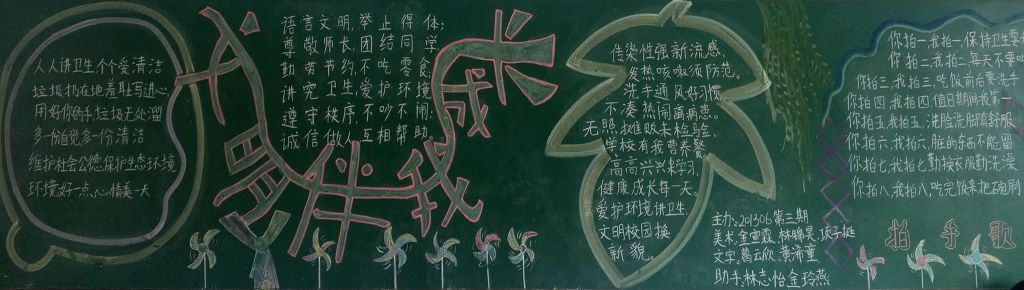 人人讲卫生,个个爱清洁
垃圾扔在地,羞耻写进心
用好你的手,垃圾无处溜
多一份自觉,多一份清洁
维护社会公德,保护生态环境
环境好一点,心情美一天
文明伴我成长
语言文明,举止得体;
尊敬师长,团结同学
勤劳节约,不吃零食
讲究卫生,爱护环境
遵守秩序,不吵不闹;
诚信做人,互相帮助。
传染性强新流感,
发热咳嗽须防范。
洗手通风好习惯,
不凑热闹离病患。
无照摊贩未检验,
学校有我营养餐。
高高兴兴来学习,
健康成长每一天。
爱护环境讲卫生
文明校园换
新貌。
主办:201306第三期
美术:金雪霖、林
文字:葛云欣、黄沛童
助手:林志怡、金玲燕
你拍一,我拍一,保持卫生要
你拍二,我拍二,每天不要
你拍三,我拍三,吃饭前后要洗手
你拍四,我拍四,值日期间我第一
你拍五,我拍五,洗脸洗脚踏舒服
你拍六,我拍六,脏的东西不能留
你拍七,我拍七,勤换衣服勤洗澡
你拍八,我拍八,吃完饭来把碗刷
拍手歌